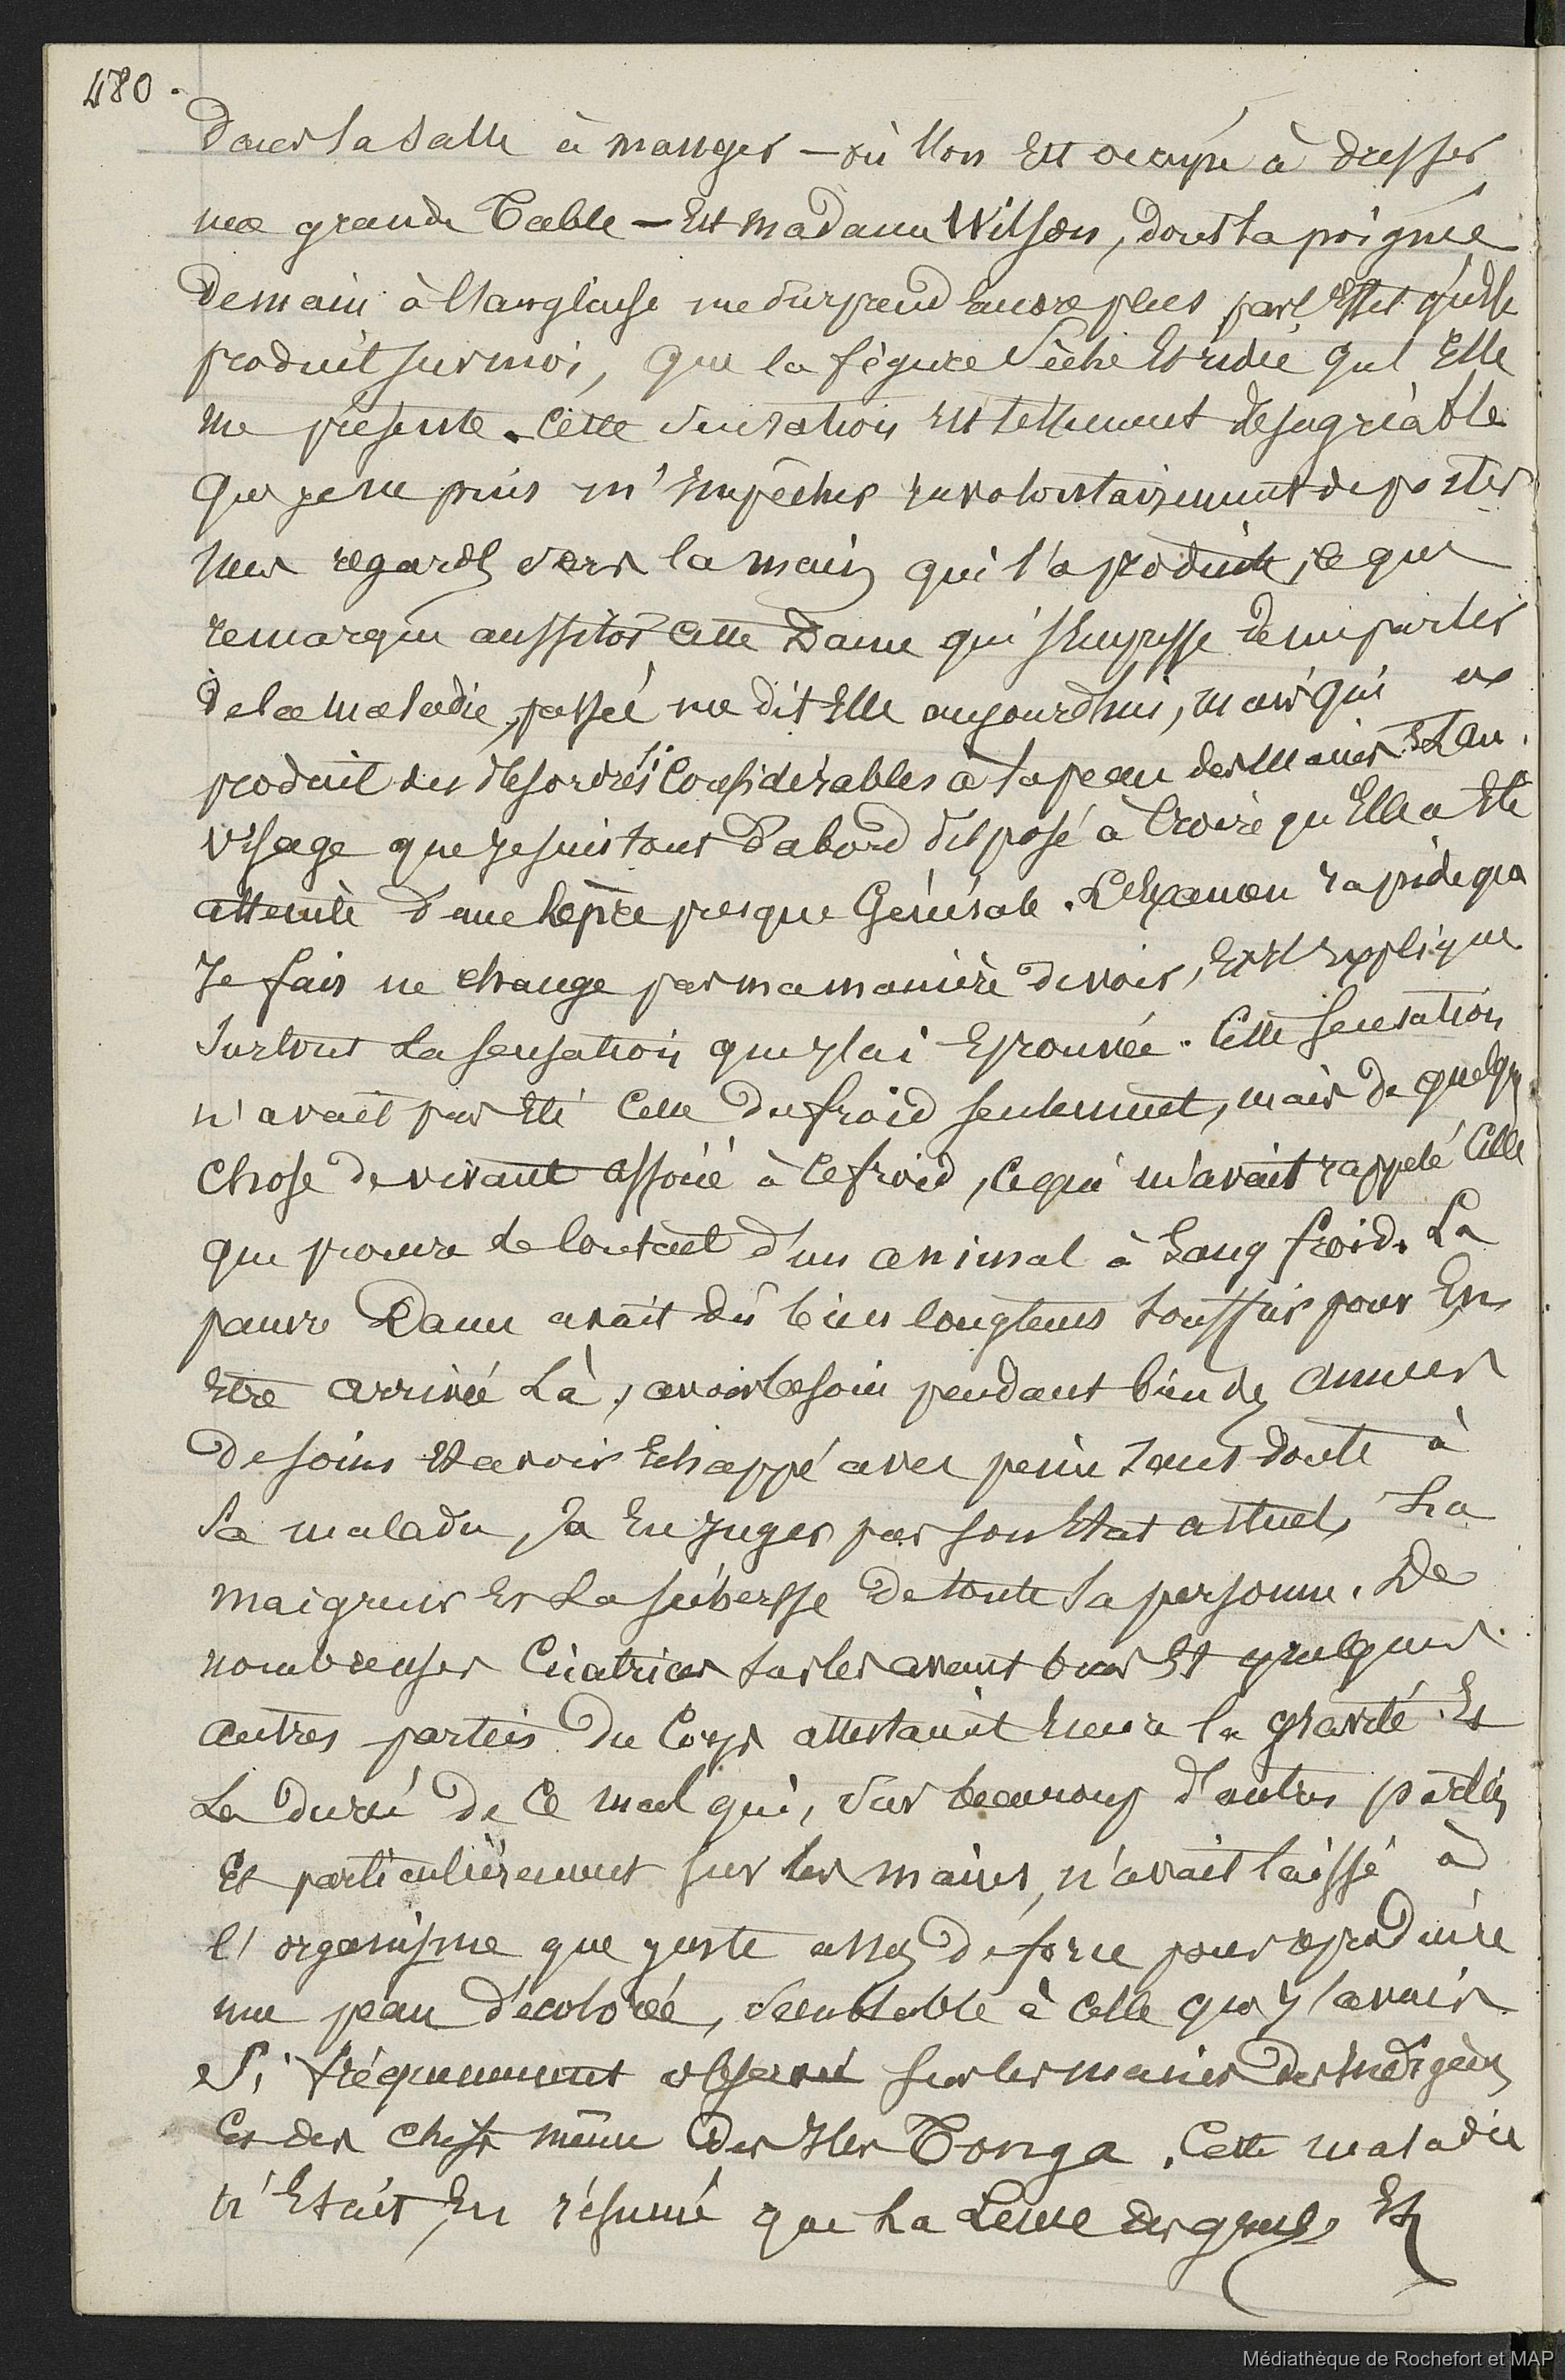 480.
Dans la salle à manger — où l'on Est occupé à dresser
une grande Table — Est Madame Wilson, dont la poignée
de main à l'anglaise me surprend encore plus par l'Effet qu'elle
produit sur moi, que la figure sèche Et ridée qu'Elle
me présente. Cette sensation Est tellement désagréable
que je ne puis m'Empêcher involontairement de porter
mes regards vers la main qui l'a produite, ce que
remarque aussitôt cette Dame qui s'Empresse de me parler
de la maladie, passée me dit Elle aujourd'hui, mais qui a
produit des désordres si Considérables à la peau des Mains Et au
visage que je suis tout d'abord disposé à Croire qu'Elle a Eté
atteinte d'une lèpre presque Générale. L'Examen rapide que
Je fais ne change pas ma manière de voir, Et il Explique
surtout la sensation que j'ai Eprouvée. Cette sensation
n'avait pas Eté Celle du froid seulement, mais de quelque
Chose de vivant associé à ce froid, ce qui m'avait rappelé Celle
que procure le Contact d'un animal à Sang froid. La
pauvre Dame avait dû bien longtems souffrir pour En
Etre arrivée Là, avoir besoin pendant bien des années
de soins Et avoir Echappé avec peine sans doute à
sa maladie, à En juger par son Etat actuel, La
maigreur Et La sécheresse de toute sa personne. De
nombreuses Cicatrices sur les avant bras Et quelques
autres parties du Corps attestaient Encore la gravité Et
La durée de Ce mal qui, sur beaucoup d'autres parties
Et particulièrement sur les mains, n'avait laissé à
l'organisme que juste assez de force pour reproduire
une peau décolorée, semblable à Celle que j'avais
si fréquemment observée sur les mains des Indigènes
Et des Chefs même des Iles Tonga. Cette maladie
n'Etait, En résumé que La Lèpre des grecs, Et
Médiathèque de Rochefort et MAP